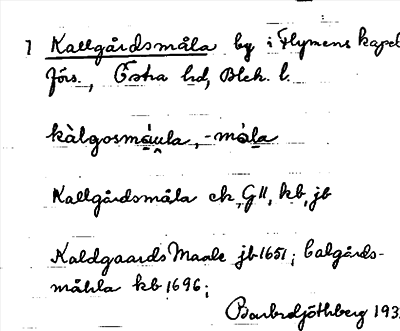 1 Kallgårdsmåla by i Flymens kapel
förs., Östra hd, Blek. l.
kàlgosmåula, -måla
Kallgårdsmåla ek, GU, kb, jb
Kaldgaards Maale jb 1651; Calgårds-
måhla kb 1696;
193